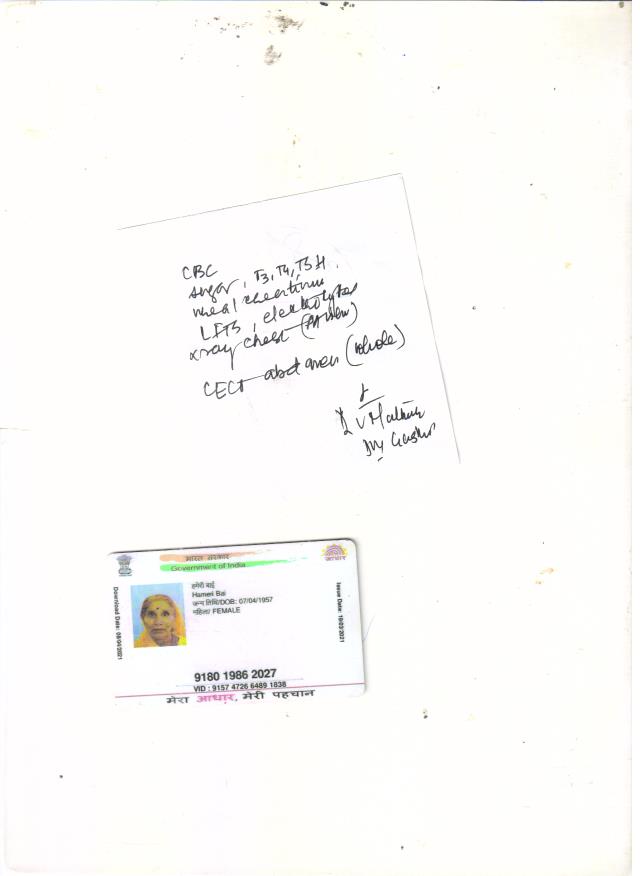 CBC
sugar, T3, T4, TSH.
urea / creatinine
LFTs, electrolytes
xray chest (PA view)
CECT abdomen (whole)
भारत सरकार
Government of India
आधार
हमेरी बाई
Hameri Bai
जन्म तिथि/DOB: 07/04/1957
महिला/ FEMALE
Download Date: 08/04/2021
Issue Date: 19/03/2021
9180 1986 2027
VID : 9157 4726 6489 1838
मेरा आधार, मेरी पहचान